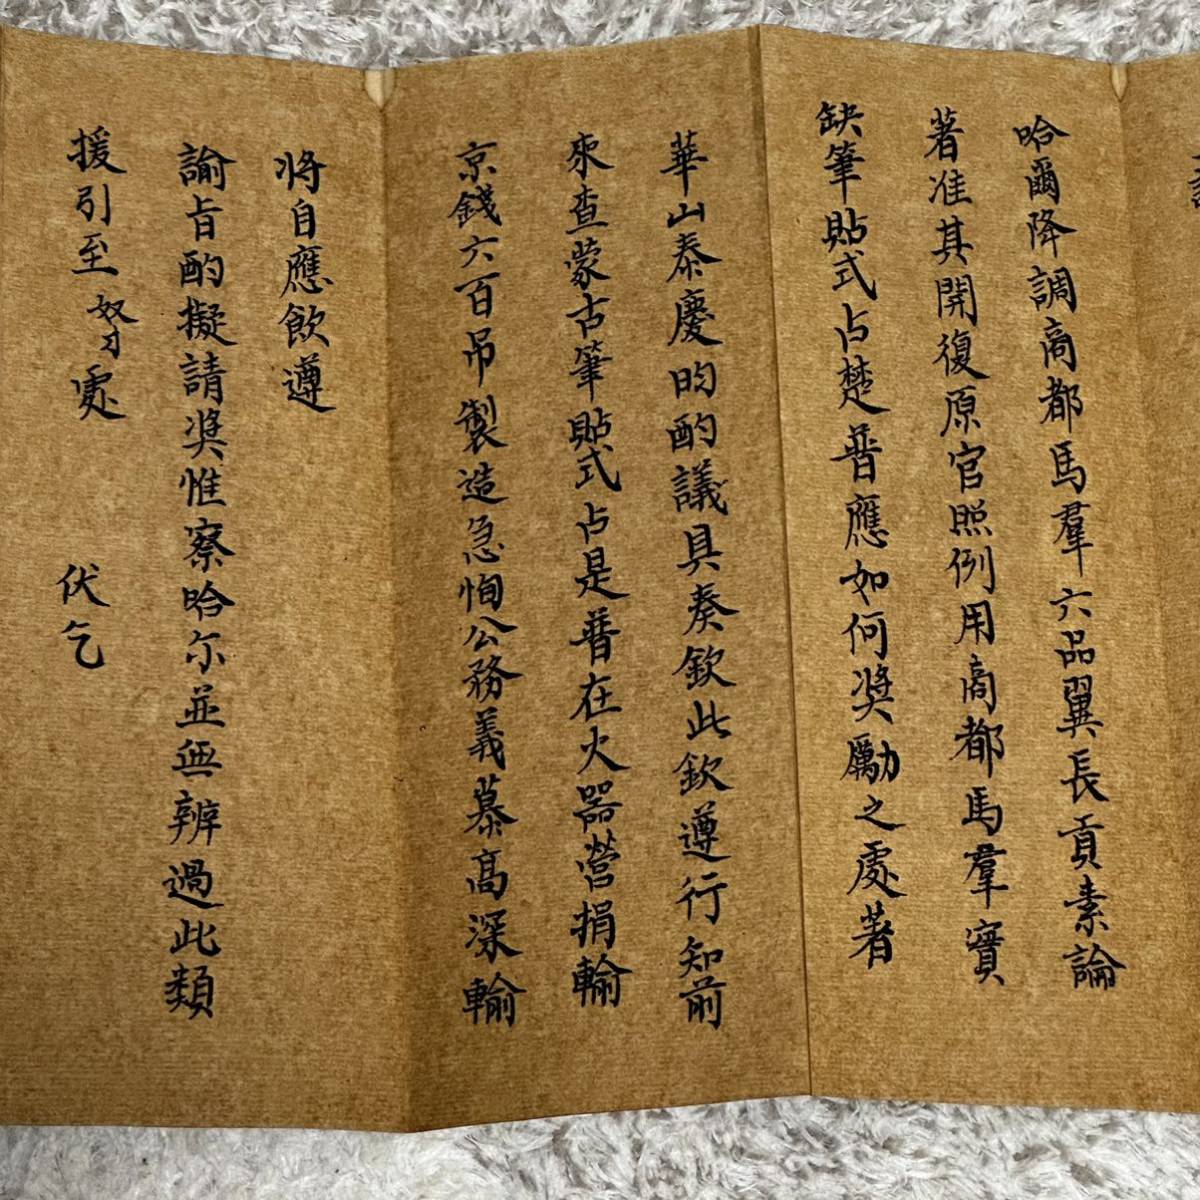 哈爾降調商都馬羣六品翼長貢素論
著准其開復原官照例用商都馬羣實
缺筆貼式占楚普應如何奬勵之處著
華山泰慶昀酌議具奏欽此欽遵行知前
來查蒙古筆貼式占是普在火器營捐輸
京錢六百吊製造急恂公務義慕高深輸
将自應飲遵
諭旨酌擬請奬惟察哈尔並無辨過此類
援引至努才處 伏乞